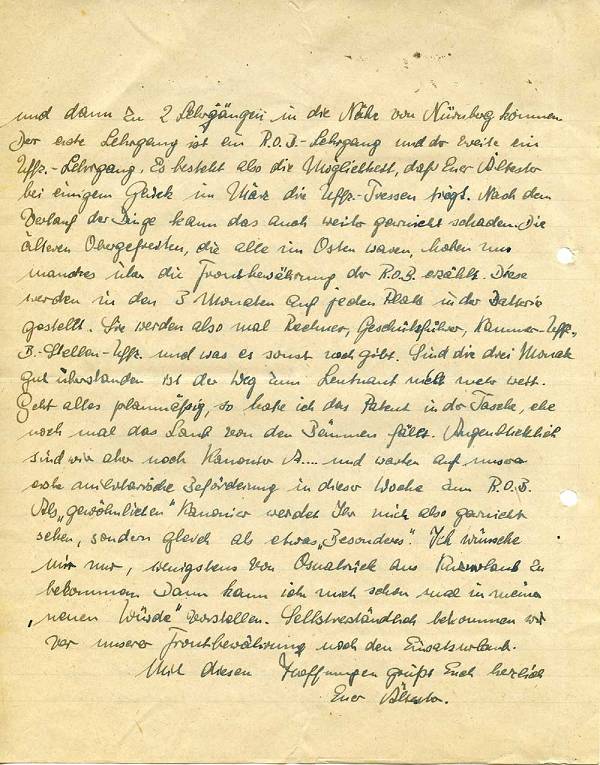 und dann zu 2 Lehrgängen in die Nähe von Nürnberg kommen.
Der erste Lehrgang ist ein R.O.B.-Lehrgang und der zweite ein
Uffz.-Lehrgang. Es besteht also die Möglichkeit, daß Euer Ältester
bei einigem Glück im März die Uffz-Tressen trägt. Nach dem
Verlauf der Dinge kann das auch weiter garnicht schaden. Die
älteren Obergefreiten, die alle im Osten waren, haben uns
manches über die Frontbewährung der R.O.B. erzählt. Diese
werden in den 3 Monaten auf jeden Platz in der Batterie
gestellt. Sie werden also mal Rechner, Geschützführer, Kammer-Uffz.
B.-Stellen-Uffz. und was es sonst noch gibt. Sind die drei Monate
gut überstanden ist der Weg zum Leutnant nicht mehr weit.
Geht alles planmäßig, so habe ich das Patent in der Tasche, ehe
noch mal das Laub von den Bäumen fällt. Augenblicklich
sind wir aber noch Kanonier A.... und warten auf unsere
erste militärische Beförderung in dieser Woche zum R.O.B.
Als „gewöhnlichen" Kanonier werdet Ihr mich also garnicht
sehen, sondern gleich als etwas „Besonderes". Ich wünsche
mir nur, wenigstens von Osnabrück aus Kurzurlaub zu
bekommen. Dann kann ich mich schon mal in meiner
„neuen Würde" vorstellen. Selbstverständlich bekommen wir
vor unserer Frontbewährung noch den Einsatzurlaub.
Mit diesen Hoffnungen grüßt Euch herzlich
Euer Ältester.